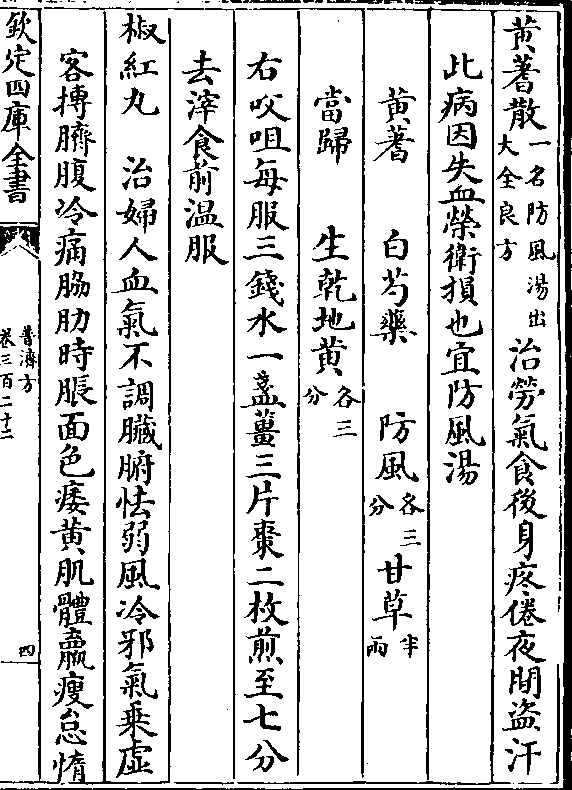 黄蓍散一名防風湯出大全良方治勞氣食後身疼倦夜間盗汗
此病因失血榮衛損也宜防風湯
黄蓍 白芍藥 防風各三分 甘草半兩
當歸 生乾地黄各三分
右㕮咀每服三錢水一盞薑三片棗二枚煎至七分
去滓食前温服
椒紅丸 治婦人血氣不調臟腑怯弱風冷邪氣乗虚
客摶臍腹冷痛脇肋時脹面色痿黄肌體羸瘦怠惰
欽定四庫全書
普濟方
卷三百二十二
四